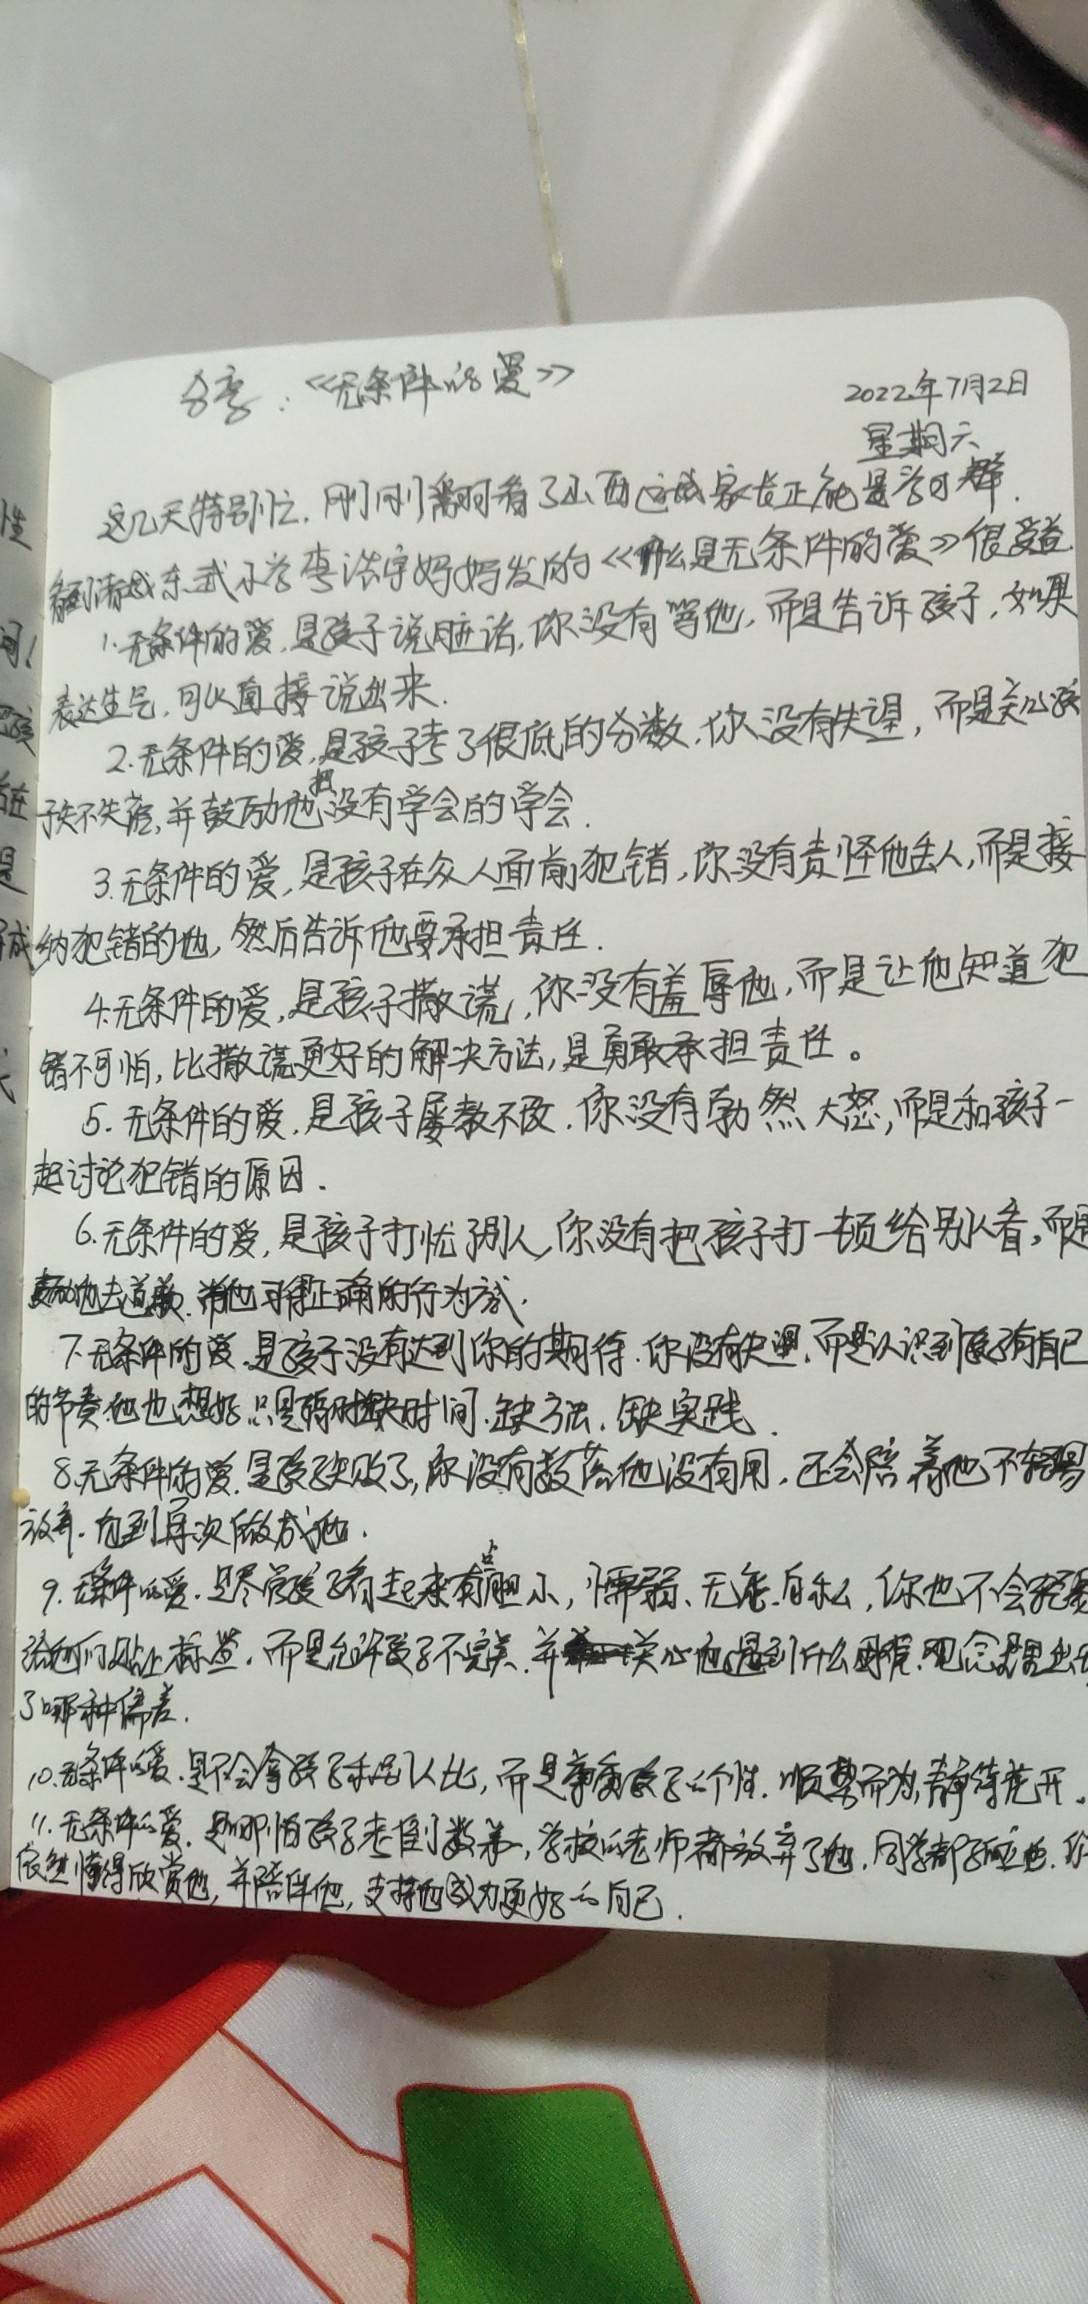 分享：《无条件的爱》
2022年7月2日
星期六
这几天特别忙，刚刚有时看了山西运城家长正能量学习群，
看到清城东武小学李浩宇妈妈发的《什么是无条件的爱》很受益。
1.无条件的爱，是孩子说脏话，你没有骂他，而是告诉孩子，如果
表达生气，可以直接说出来.
2.无条件的爱，是孩子考了很低的分数，你没有失望，而是关心孩
子失不失落，并鼓励他把没有学会的学会.
3.无条件的爱，是孩子在众人面前犯错，你没有责怪他丢人，而是接
纳犯错的他，然后告诉他要承担责任.
4.无条件的爱，是孩子撒谎，你没有羞辱他，而是让他知道犯
错不可怕，比撒谎更好的解决方法，是勇敢承担责任。
5.无条件的爱，是孩子屡教不改，你没有勃然大怒，而是和孩子一
起讨论犯错的原因.
6.无条件的爱，是孩子打扰了别人，你没有把孩子打一顿给别人看，而是
鼓励他去道歉，带他习得正确的行为方式.
7.无条件的爱，是孩子没有达到你的期待，你没有失望，而是认识到孩子有自己
的节奏，他也想好，只是暂时缺时间、缺方法、缺实践.
8.无条件的爱，是孩子失败了，你没有数落他没有用，还会陪着他不轻易
放弃，直到再次做成他.
9.无条件的爱，是尽管孩子看起来有点胆小，懦弱、无能、自私，你也不会轻易
给他们贴上标签，而是允许孩子不完美，并关心他遇到什么困难，观念里出现
了哪种偏差.
10.无条件的爱，是不会拿孩子和别人比，而是尊重孩子的个性，顺势而为，静待花开。
11.无条件的爱，是哪怕孩子考倒数第一，学校的老师都放弃了他，同学都孤立他，你
依然懂得欣赏他，并陪伴他，支持他成为更好的自己.